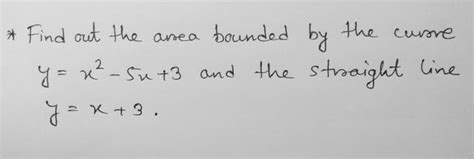 * Find out the area bounded by the curve
y = x² - 5x + 3 and the straight line
y = x + 3.